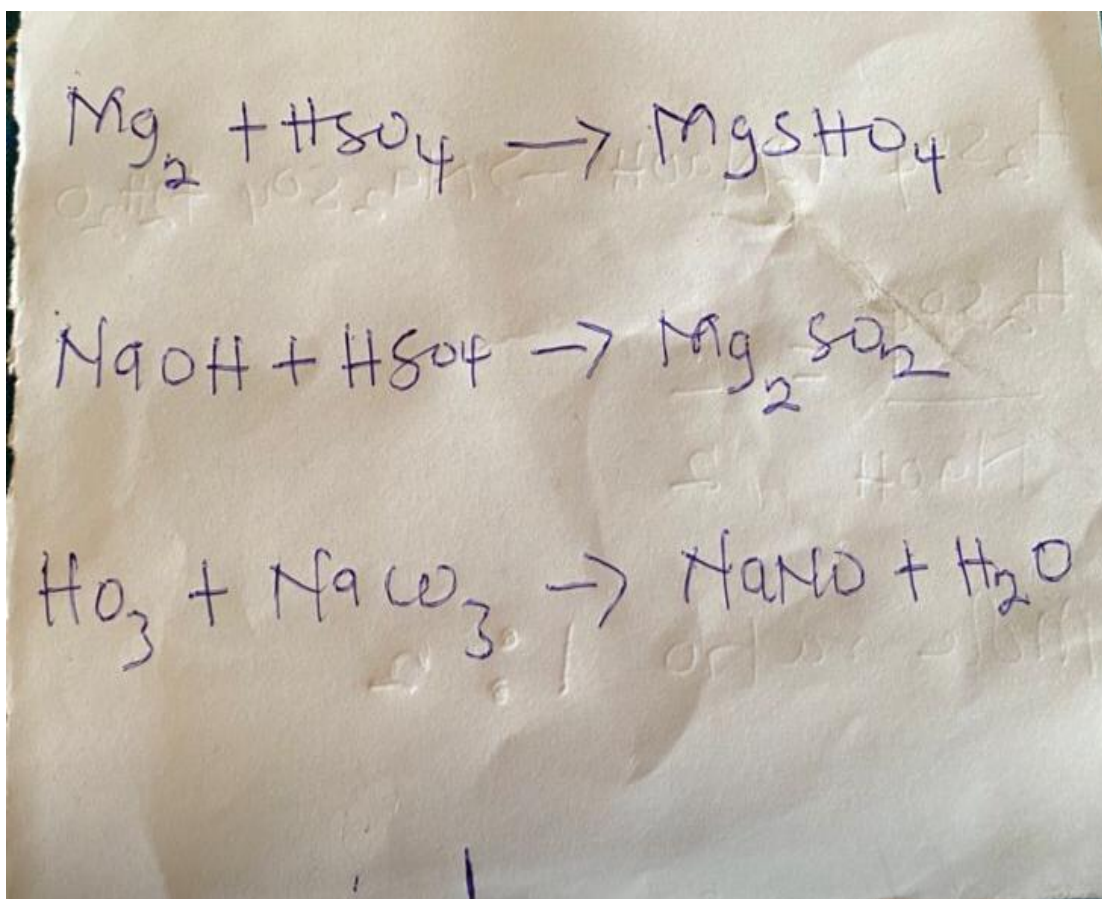 Mg₂ + HSO₄ → MgSHO₄
NaOH + HSO4 → Mg₂SO₂
HO₃ + NaCO₃ → NaNO + H₂O